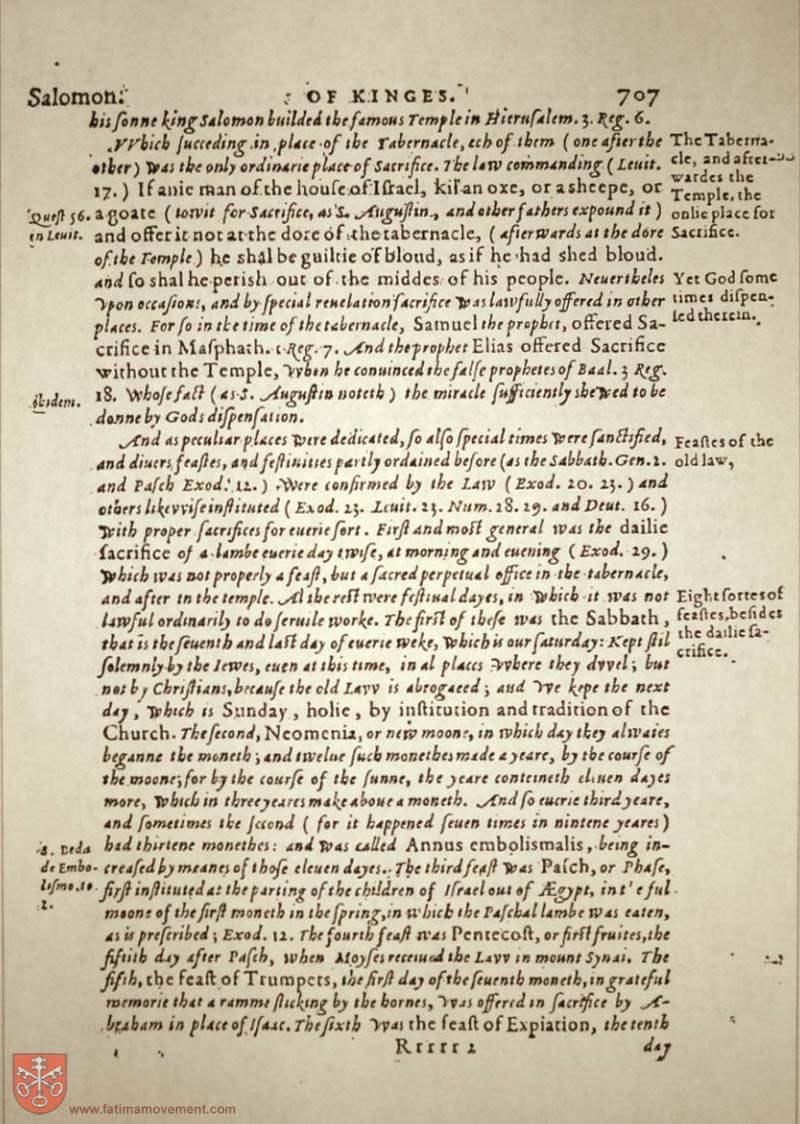 Salomon. OF KINGES. 707
his sonne king Salomon builded the famous Temple in Hierusalem. 3. Reg. 6.
VVhich succeding in place of the Tabernacle, ech of them (one after the
other) was the only ordinarie place of Sacrifice. The law commanding (Leuit.
17.) If anie man of the house of Israel, kil an oxe, or a sheepe, or
a goate (towit for Sacrifice, as S. Augustin, and other fathers expound it)
and offer it not at the dore of the tabernacle, (afterwards at the dore
of the Temple) he shal be guiltie of bloud, as if he had shed bloud.
and so shal he perish out of the middes of his people. Neuertheles
vpon occasions, and by special reuelation sacrifice was lawfully offered in other
places. For so in the time of the tabernacle, Samuel the prophet, offered Sa-
crifice in Masphath. 1. Reg. 7. And the prophet Elias offered Sacrifice
without the Temple, when he conuinced the false prophetes of Baal. 3 Reg.
18. Whose fact (as S. Augustin noteth) the miracle sufficiently shewed to be
donne by Gods dispensation.
And as peculiar places were dedicated, so also special times were sanctified,
and diuers feastes, and festiuities partly ordained before (as the Sabbath. Gen. 2.
and Pasch Exod. 12.) Were confirmed by the Law (Exod. 20. 23.) and
others likewise instituted (Exod. 23. Leuit. 23. Num. 28. 29. and Deut. 16.)
with proper sacrifices for euerie sort. First and most general was the dailie
sacrifice of a lambe euerie day twise, at morning and euening (Exod. 29.)
Which was not properly a feast, but a sacred perpetual office in the tabernacle,
and after in the temple. Al the rest were festiual dayes, in which it was not
lawful ordinarily to do seruile worke. The first of these was the Sabbath,
that is the seuenth and last day of euerie weke, which is our saturday: Kept stil
solemnly by the Iewes, euen at this time, in al places where they dwel; but
not by Christians, because the old Law is abrogaeed; and we kepe the next
day, which is Sunday, holie, by institution and tradition of the
Church. The second, Neomenia, or new moone, in which day they alwaies
beganne the moneth; and twelue such monethes made a yeare, by the course of
the moone; for by the course of the sunne, the yeare conteineth eleuen dayes
more, which in three yeares make aboue a moneth. And so euerie third yeare,
and sometimes the second (for it happened seuen times in nintene yeares)
had thirtene monethes: and was called Annus embolismalis, being in-
creased by meanes of those eleuen dayes. The third feast was Pasch, or Phase,
first instituted at the parting of the children of Israel out of Ægypt, in t'e ful
moone of the first moneth in the spring, in which the Paschal lambe was eaten,
as is prescribed; Exod. 12. The fourth feast was Pentecost, or first fruites, the
fiftith day after Pasch, when Moyses receiued the Law in mount Synai. The
fifth, the feast of Trumpets, the first day of the seuenth moneth, in grateful
memorie that a ramme sticking by the hornes, was offered in sacrifice by A-
braham in place of Isaac. The sixth was the feast of Expiation, the tenth
Rrrrr 2 day
Quest 56.
in Leuit.
ibidem.
s. Beda
de Embo-
lismo. to.
The Taberna-
cle, and after-
wardes the
Temple, the
onlie place for
Sacrifice.
Yet God some
times dispen-
sed therein.
Feastes of the
old law,
Eight sortes of
feastes, besides
the dailie sa-
crifice.
www.fatimamovement.com